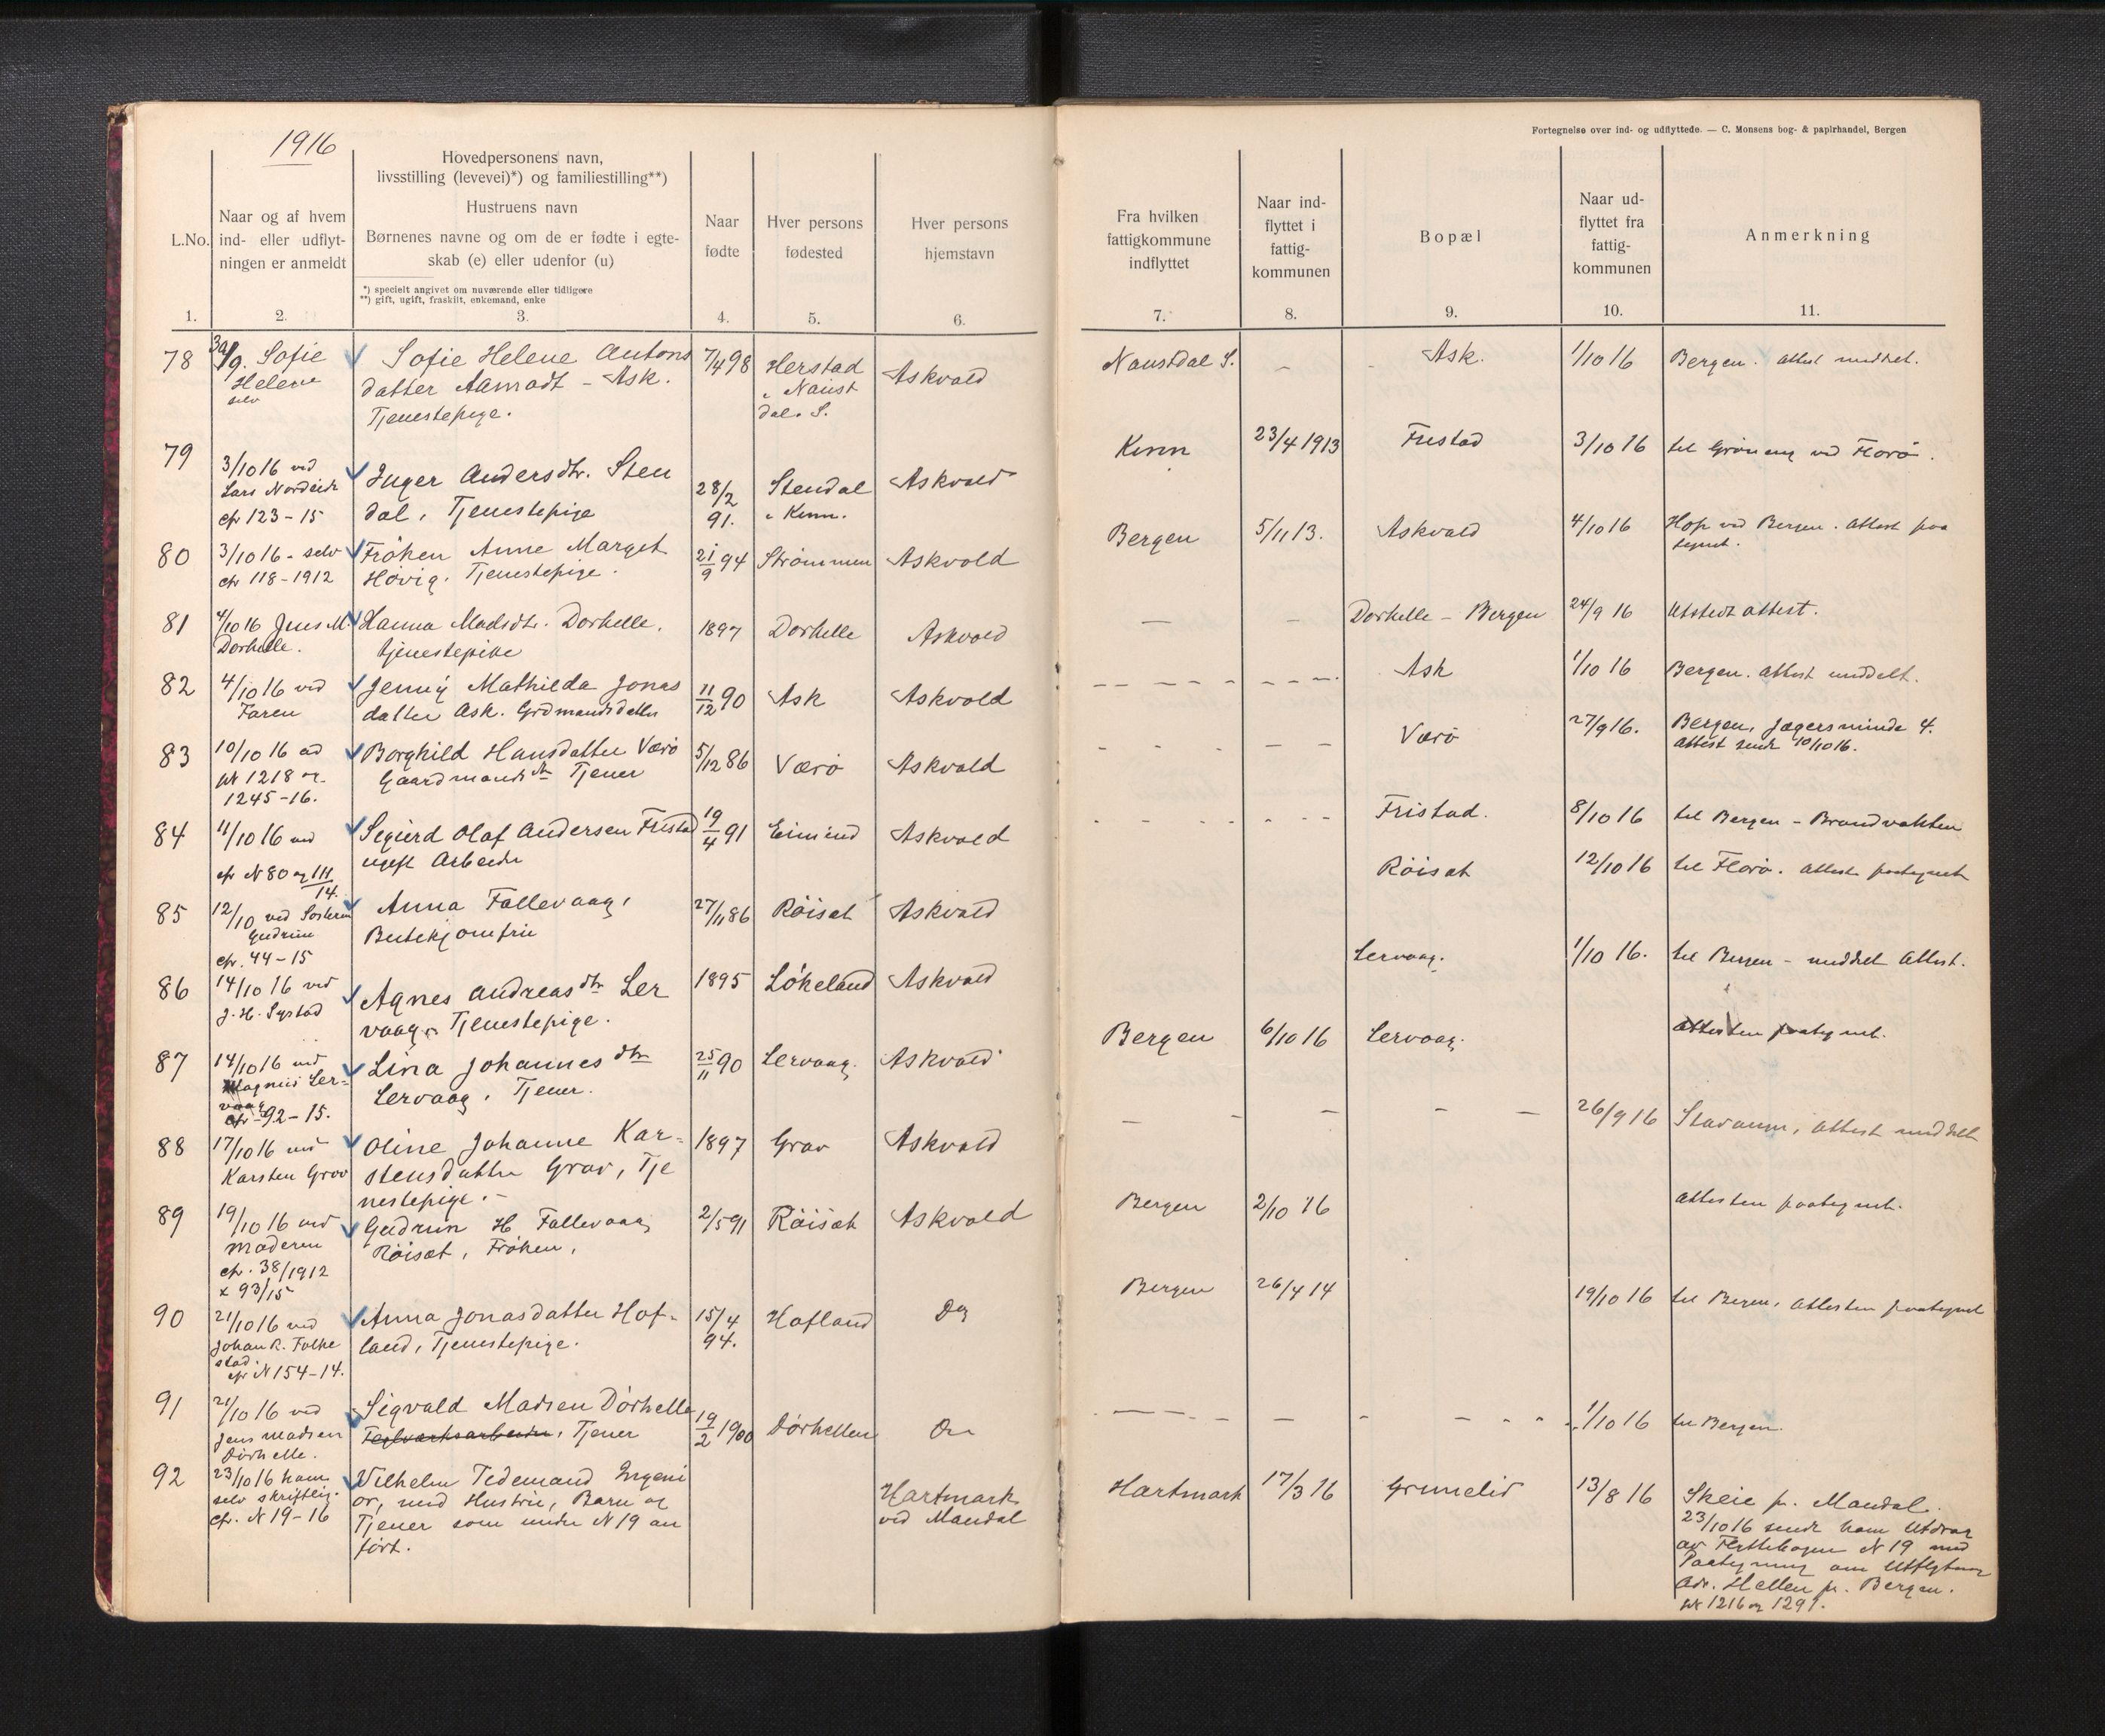 1916
Fortegnelse over ind- og udflyttede. — C. Monsens bog- & papirhandel, Bergen
L.No.
Naar og af hvem
ind- eller udflyt-
ningen er anmeldt
Hovedpersonens navn,
livsstilling (levevei)*) og familiestilling**)
Hustruens navn
Børnenes navne og om de er fødte i egte-
skab (e) eller udenfor (u)
*) specielt angivet om nuværende eller tidligere
**) gift, ugift, fraskilt, enkemand, enke
Naar
fødte
Hver persons
fødested
Hver persons
hjemstavn
Fra hvilken
fattigkommune
indflyttet
Naar ind-
flyttet i
fattig-
kommunen
Bopæl
Naar ud-
flyttet fra
fattig-
kommunen
Anmerkning
1. 2. 3. 4. 5. 6. 7. 8. 9. 10. 11.
78 30/9. Sofie
Helene
selv
Sofie Helene Antons
datter Aamodt - Ask.
Tjenestepige.
7/4 98
Herstad
i Naust
dal. S.
Askvold
Naustdal S. - - Ask. 1/10 16 Bergen. Attest meddelt.
79 3/10 16 ved
Lars Nordeide
cfr 123-15
Inger Andersdtr. Sten
dal, Tjenestepige
28/2
91.
Stendal
i Kinn.
Askvold
Kinn 23/4 1913 Fristad 3/10 16 til Grøneng ved Florø.
80 3/10 16 - selv
cfr 118-1912
Frøken Anne Marget
Høvig. Tjenestepige.
21/9 94 Strømmen Askvold
Bergen 5/11 13. Askvold 4/10 16 Hop ved Bergen. Attest paa
tegnet.
81 4/10 16 Jens M.
Dørhelle.
Hanna Madsdtr. Dørhelle.
tjenestepike
1897 Dørhelle Askvold
— - Dørhelle - Bergen 24/9 16 Utstedt attest.
82 4/10 16 ved
Faren
Jenny Mathilda Jonas
datter Ask. Grdmandsdatter
11/12 90 Ask Askvold
Ask 1/10 16 Bergen. Attest meddelt.
83 10/10 16 ad
Wk 1218 og
1245-16.
Borghild Hansdatter Værø
Gaardmandsdtr Tjener
5/12 86 Værø Askvold
Værø 27/9 16. Bergen, Jægersminde 4.
Attest sendt 10/10 16.
84 11/10 16 ved
cfr N 80 og 111/14.
Sigurd Olaf Andersen Fristad
ugift Arbeider
19/4 91 Eimind Askvold
Fristad. 8/10 16 til Bergen - Brandvakten
85 12/10 ved Søsteren
Gudrun
cfr. 44-15
Anna Fallevaag,
Butikjomfru
27/11 86 Røiset Askvold
Røiset 12/10 16 til Florø. Attest paategnet
86 14/10 16 ved
J. H. Systad
Agnes Andreasdtr Ler
vaag, Tjenestepige.
1895 Løkeland Askvold
Lervaag. 1/10 16. til Bergen - meddelt Attest.
87 14/10 16 ved
Magnus Ler-
vaag
cfr 92-15.
Lina Johannesdtr
Lervaag, Tjener.
25/11 90 Lervaag. Askvold
Bergen 6/10 16 Lervaag. Attesten paategnet.
88 17/10 16 ved
Karsten Grov
Oline Johanne Kar-
stensdatter Grov, Tje
nestepige.
1897 Grov Askvold
— — - — 26/9 16 Stavanger, Attest meddelt
89 19/10 16 ved
Moderen
cfr. 38/1912
x 93/15
Gudrun H Fallevaag
Røiset, Frøken,
2/5 91 Røiset Askvold
Bergen 2/10 16 Attesten paategnet.
90 21/10 16 ved
Johan R. Folke
stad.
cfr N 154-14.
Anna Jonasdatter Hof-
land, Tjenestepige.
15/4
94.
Hofland Do
Bergen 26/4 14 19/10 16 til Bergen, Attesten paategnet
91 21/10 16 ved
Jens Madsen
Dørhelle.
Sigvald Madsen Dørhelle
Teglverksarbeider, Tjener
19/2 1900 Dørhellen Do
1/10 16 til Bergen.
92 23/10 16 ham
selv skriftlig.
cfr. N 19-16
Vilhelm Tidemand Ingeni
ør, med Hustru, Barn og
Tjener som under N 19 an
ført.
Hartmark
ved Mandal
Hartmark 17/3 16 Grimelid 13/8 16 Skeie pr. Mandal.
23/10 16 sendt ham Utdrag
av Flyttebogen N 19 med
Paategning om Utflytning
Adr. Hellen pr. Bergen.
Wk 1216 og 1291.